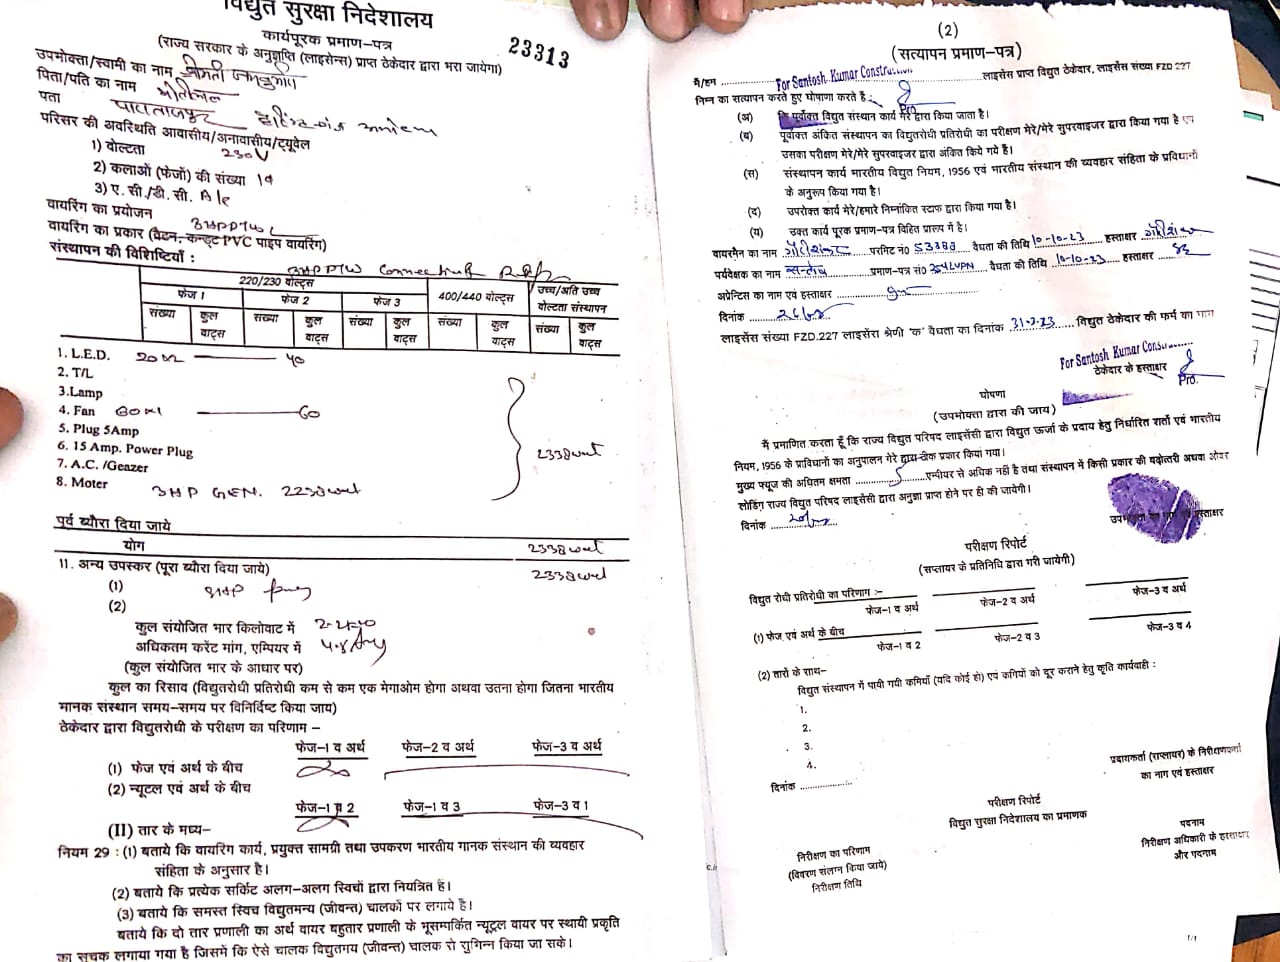 विद्युत सुरक्षा निदेशालय
कार्यपूरक प्रमाण-पत्र
23313
(राज्य सरकार के अनुज्ञप्ति (लाइसेन्स) प्राप्त ठेकेदार द्वारा भरा जायेगा)
उपभोक्ता/स्वामी का नाम श्रीमती
पिता/पति का नाम
पता
परिसर की अवस्थिति आवासीय/अनावासीय/ट्यूवैल
1) वोल्टता 230V
2) कलाओं (फेजों) की संख्या
3) ए. सी./डी. सी. A/c
वायरिंग का प्रयोजन 3HPPTW
वायरिंग का प्रकार (बैटन, कन्डूट PVC पाइप वायरिंग)
संस्थापन की विशिष्टियाँ : 3HP PTW Connection
220/230 वोल्ट्स 400/440 वोल्ट्स उच्च/अति उच्च वोल्टता संस्थापन
फेज 1 फेज 2 फेज 3
संख्या कुल वाट्स संख्या कुल वाट्स संख्या कुल वाट्स संख्या कुल वाट्स संख्या कुल वाट्स
1. L.E.D. 20x2 40
2. T/L
3.Lamp
4. Fan 60x1 60
5. Plug 5Amp
6. 15 Amp. Power Plug
2338watt
7. A.C. /Geazer
8. Moter 3HP GEN. 2238watt
पूर्व ब्यौरा दिया जाये
योग 2338watt
11. अन्य उपस्कर (पूरा ब्यौरा दिया जाये) 2338watt
(1) 3HP
(2)
कुल संयोजित भार किलोवाट में
अधिकतम करेंट मांग, एम्पियर में
(कुल संयोजित भार के आधार पर)
कुल का रिसाव (विद्युतरोधी प्रतिरोधी कम से कम एक मेगाओम होगा अथवा उतना होगा जितना भारतीय
मानक संस्थान समय-समय पर विनिर्दिष्ट किया जाय)
ठेकेदार द्वारा विद्युतरोधी के परीक्षण का परिणाम –
फेज-1 व अर्थ फेज-2 व अर्थ फेज-3 व अर्थ
(1) फेज एवं अर्थ के बीच
(2) न्यूटल एवं अर्थ के बीच
फेज-1 व 2 फेज-1 व 3 फेज-3 व 1
(II) तार के मध्य–
नियम 29 : (1) बताये कि वायरिंग कार्य, प्रयुक्त सामग्री तथा उपकरण भारतीय गानक संस्थान की व्यवहार
संहिता के अनुसार है।
(2) बताये कि प्रत्येक सर्किट अलग-अलग स्विचों द्वारा नियत्रित हैं।
(3) बताये कि समस्त स्विच विद्युतमन्य (जीवन्त) चालकों पर लगाये है।
बताये कि दो तार प्रणाली का अर्थ वायर बहुतार प्रणाली के भूसम्पर्कित न्यूट्रल वायर पर स्थायी प्रकृति
का सूचक लगाया गया है जिसमें कि ऐसे चालक विद्युतगय (जीवन्त) चालक से सुगिन्न किया जा सके।
(2)
(सत्यापन प्रमाण-पत्र)
मै/हम For Santosh Kumar Construction लाइसेंस प्राप्त विद्युत ठेकेदार, लाइसेंस संख्या FZD.227
निम्न का सत्यापन करते हुए घोषाणा करते है : Pro.
(अ) कि पूर्वोक्त विद्युत संस्थान कार्य मेरे द्वारा किया जाता है।
(ब) पूर्वोक्त अंकित संस्थापन का विद्युतरोधी प्रतिरोधी का परीक्षण मेरे/मेरे सुपरवाइजर द्वारा किया गया है एवं
उसका परीक्षण मेरे/मेरे सुपरवाइजर द्वारा अंकित किये गये हैं।
(स) संस्थापन कार्य भारतीय विद्युत नियम, 1956 एवं भारतीय संस्थान की व्यवहार संहिता के प्रविधानों
के अनुरूप किया गया है।
(द) उपरोक्त कार्य मेरे/हमारे निम्नांकित स्टाफ द्वारा किया गया है।
(य) उक्त कार्य पूरक प्रमाण-पत्र विहित प्रारूप में है।
वायरमैन का नाम गौरीशंकर परमिट नं0 53388 वैधता की तिथि 10-10-23 हस्ताक्षर गौरीशंकर
पर्यवेक्षक का नाम सन्तोष प्रमाण-पत्र सं0 वैधता की तिथि 10-10-23 हस्ताक्षर
अप्रेन्टिस का नाम एवं हस्ताक्षर
दिनांक
लाइसेंस संख्या FZD.227 लाइसेंरा श्रेणी 'क' वैधता का दिनांक 31-3-23 विद्युत ठेकेदार की फर्म का नाम
For Santosh Kumar Construction
ठेकेदार के हस्ताक्षर Pro.
घोषणा
(उपमोक्ता द्वारा की जाय)
मैं प्रमाणित करता हूँ कि राज्य विद्युत परिषद लाइसेंसी द्वारा विद्युत ऊर्जा के प्रदाय हेतु निर्धारित शर्तों एवं भारतीय
नियम, 1956 के प्राविधानों का अनुपालन गेरे द्वारा ठीक प्रकार किया गया।
मुख्य फ्यूज की अधितम क्षमता 5 एम्पीयर से अधिक नहीं है तथा संस्थापन में किसी प्रकार की बढ़ोत्तरी अथवा ओवर
लोडिंग राज्य विद्युत परिषद लाइसेंसी द्वारा अनुज्ञा प्राप्त होने पर ही की जायेगी।
दिनांक
उपभोक्ता हस्ताक्षर
परीक्षण रिपोर्ट
(सप्लायर के प्रतिनिधि द्वारा भरी जायेगी)
विद्युत रोधी प्रतिरोधी का परिणाम :–
फेज-1 व अर्थ फेज-2 व अर्थ फेज-3 व अर्थ
(1) फेज एवं अर्थ के बीच
फेज-1 व 2 फेज-2 व 3 फेज-3 व 4
(2) तारों के साथ–
विद्युत संस्थापन में पायी गयी कमियॉ (यदि कोई हो) एवं कगियों को दूर कराने हेतु कृति कार्यवाही :
1.
2.
3.
4.
दिनांक
प्रदायकर्ता (राप्लायर) के निरीक्षणकर्ता
का नाग एवं हस्ताक्षर
परीक्षण रिपोर्ट
विद्युत सुरक्षा निदेशालय का प्रमाणक
निरीक्षण का परिणाम
(विवरण संलग्न किया जाये)
निरीक्षण तिथि
पदनाम
निरीक्षण अधिकारी के हस्ताक्षर
और पदनाम
1/1